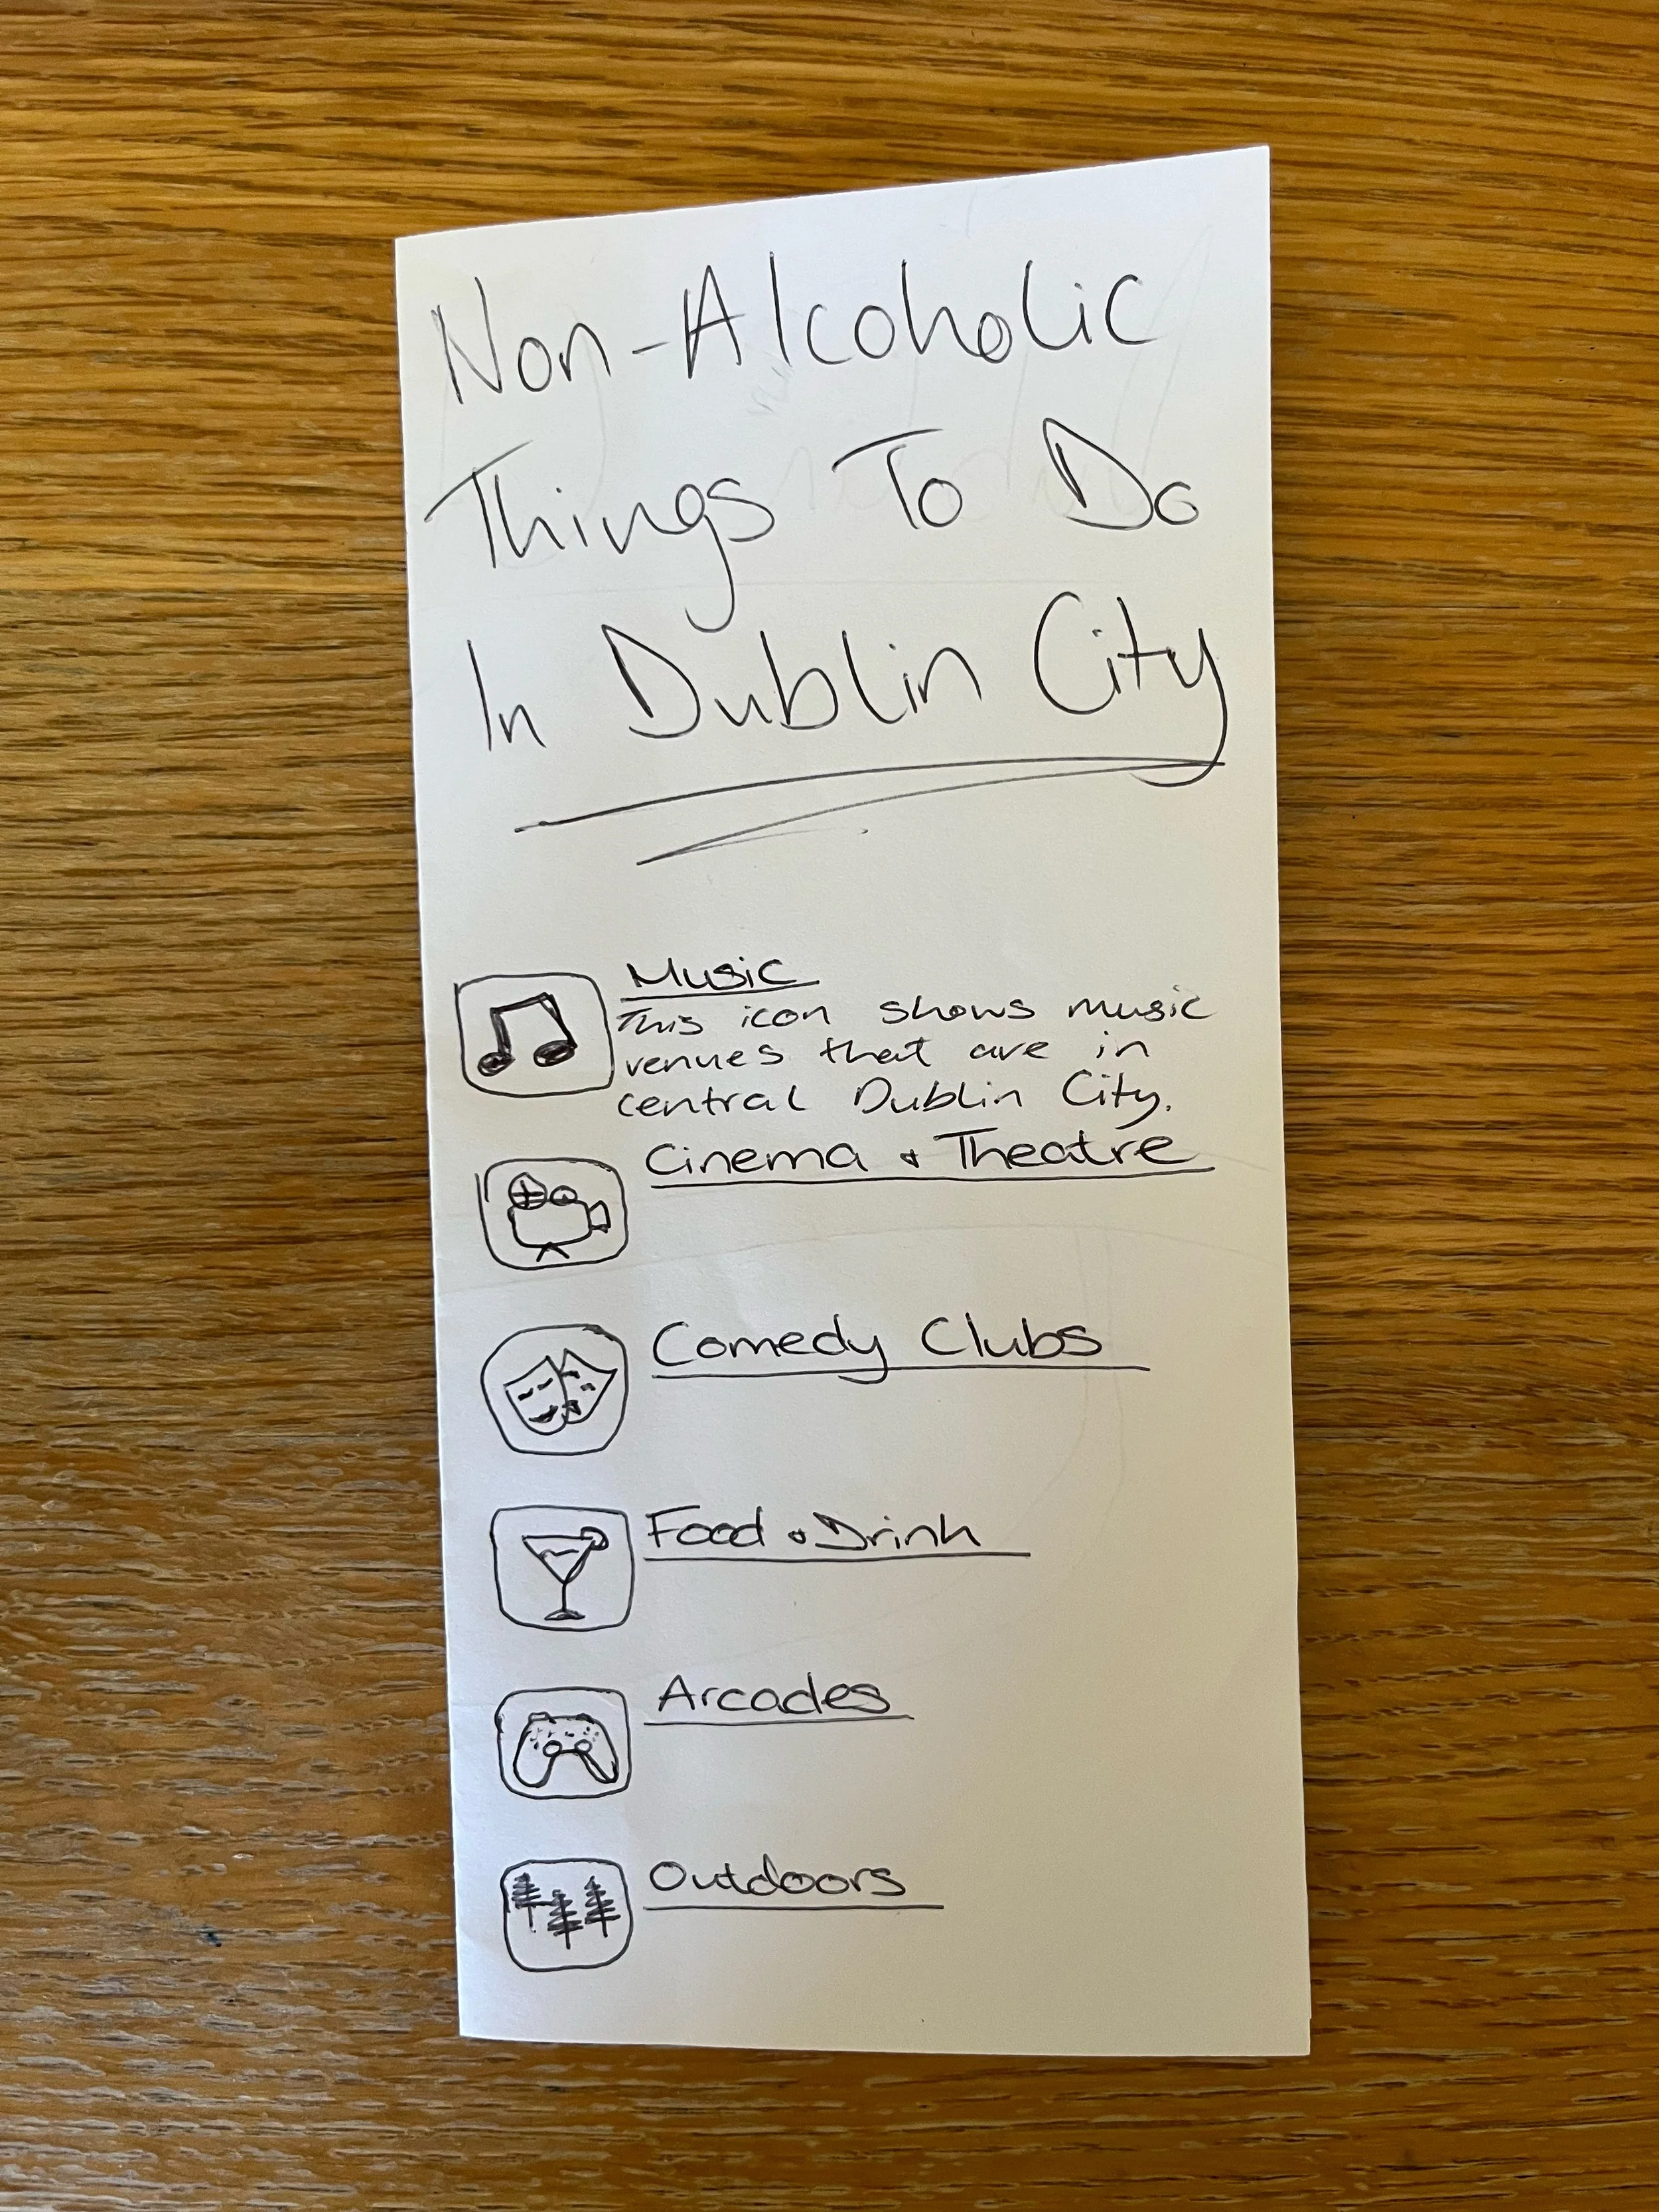 Non-Alcoholic
Things To Do
In Dublin City
Music
This icon shows music
venues that are in
central Dublin City.
Cinema & Theatre
Comedy Clubs
Food & Drink
Arcades
Outdoors